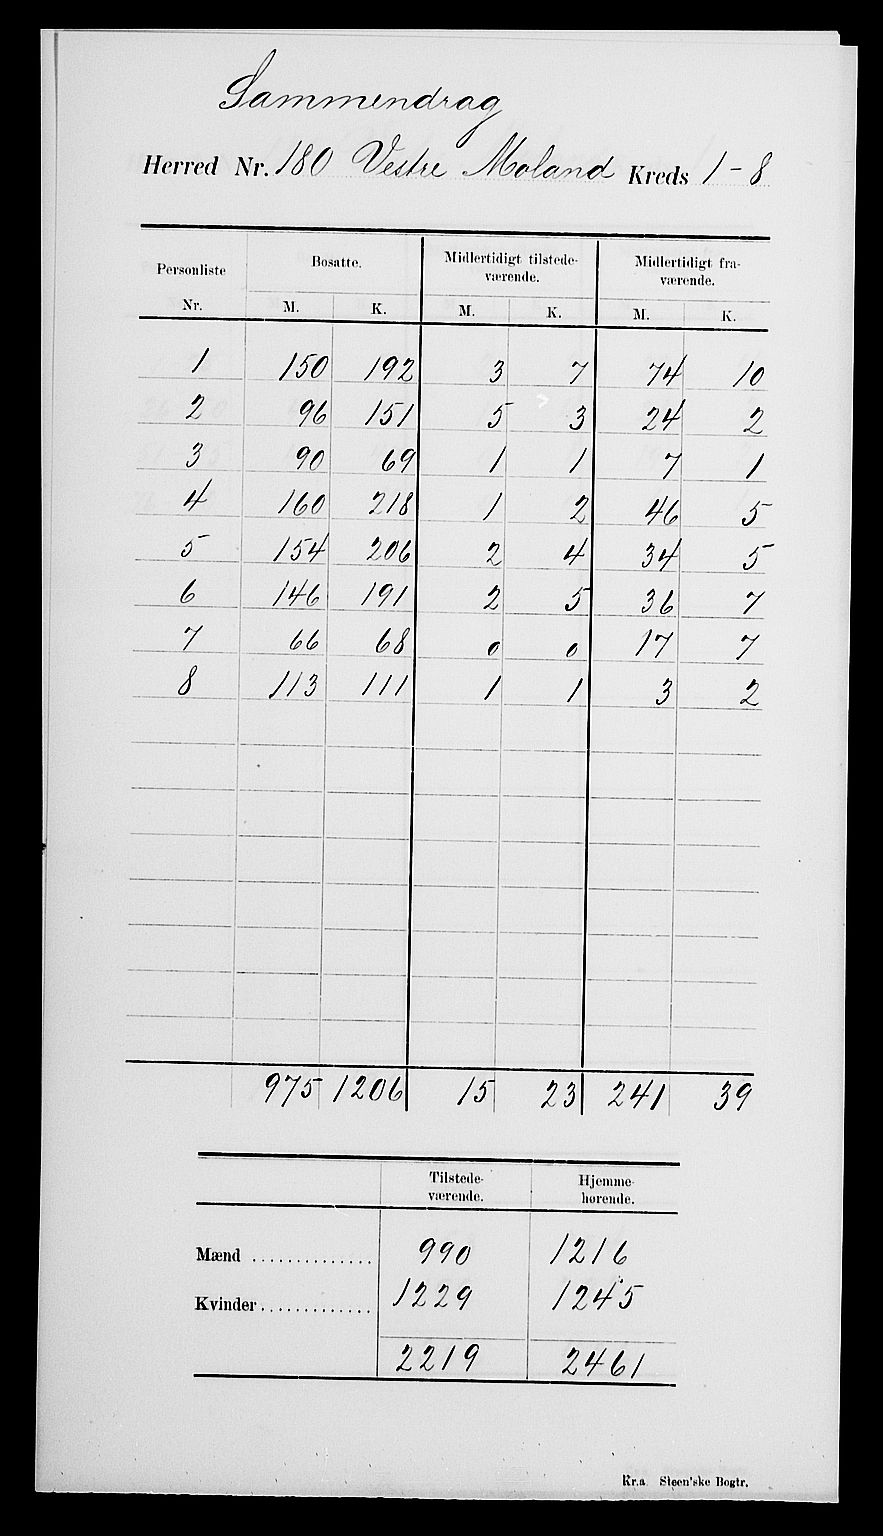 Sammendrag
Herred Nr. 180 Vestre Moland Kreds 1-8
Personliste Nr. Bosatte. Midlertidigt tilstede-værende. Midlertidigt fra-værende.
M. K. M. K. M. K.
1 150 192 3 7 74 10
2 96 151 5 3 24 2
3 90 69 1 1 7 1
4 160 218 1 2 46 5
5 154 206 2 4 34 5
6 146 191 2 5 36 7
7 66 68 0 0 17 7
8 113 111 1 1 3 2
975 1206 15 23 241 39
Tilstede-værende. Hjemme-hørende.
Mænd .............. 990 1216
Kvinder ............. 1229 1245
2219 2461
Kr.a Steen'ske Bogtr.